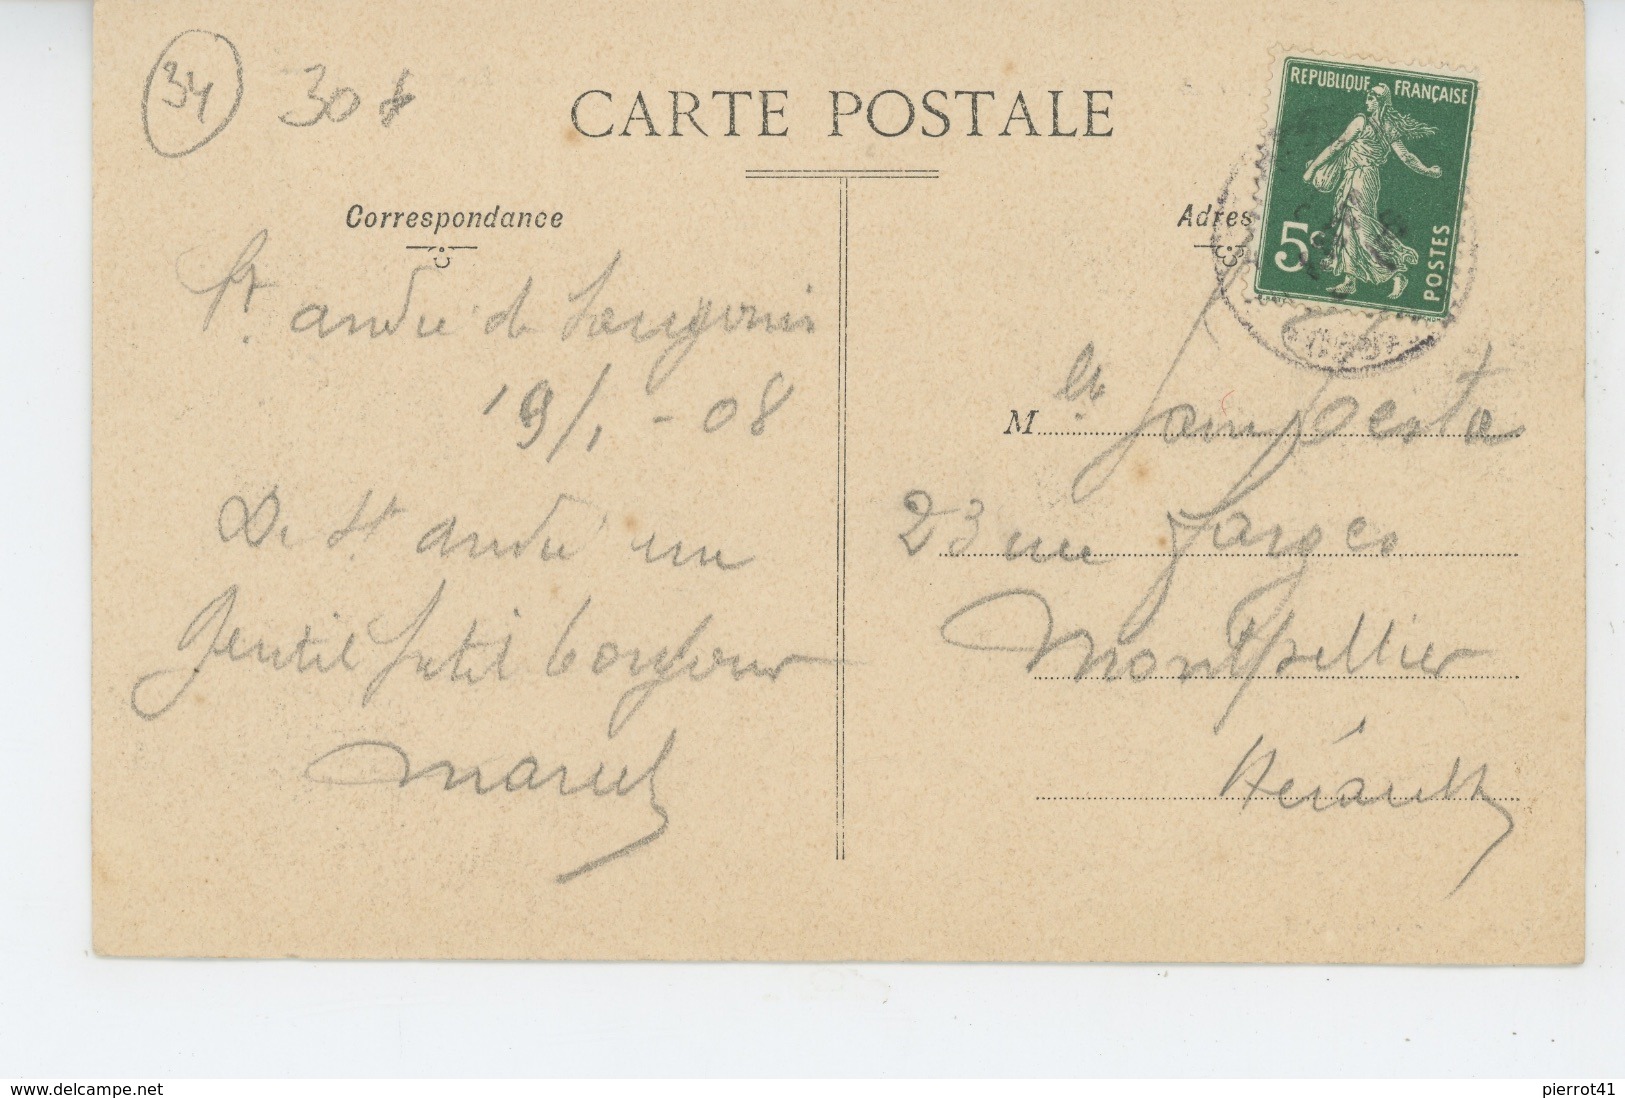 34 30
CARTE POSTALE
REPUBLIQUE FRANÇAISE
5c POSTES
Correspondance
Adres
St. andré de Sangonis
19/1 - 08
De St andré un
Gentil petit bonjour
Marcel
M lle
23 rue
Montpellier
Hérault
www.delcampe.net
pierrot41